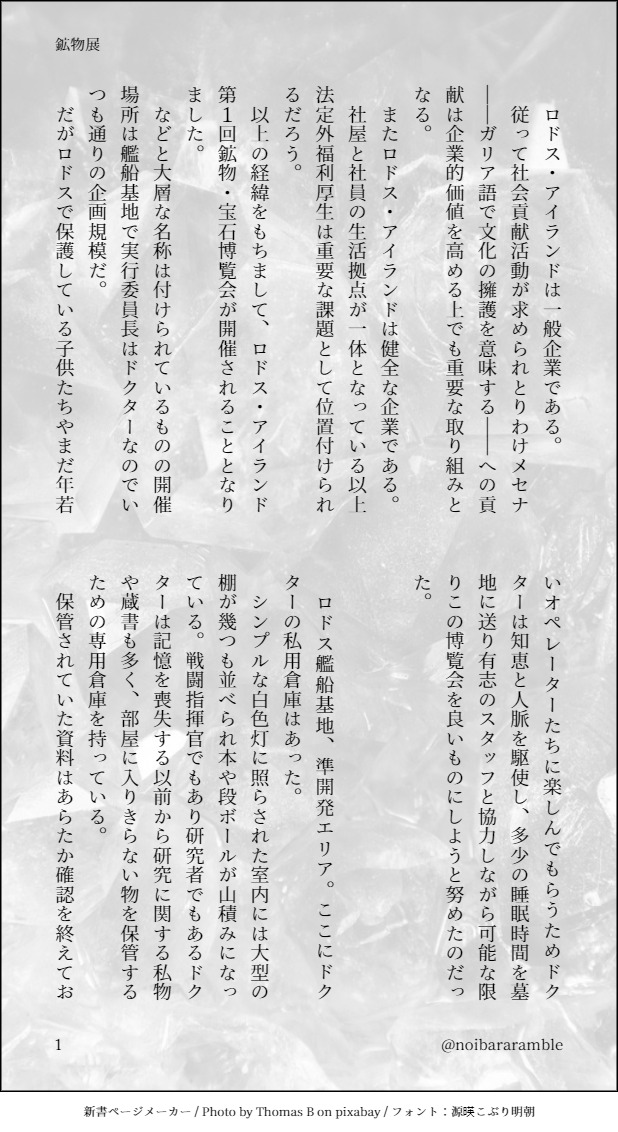 鉱物展
　ロドス・アイランドは一般企業である。
　従って社会貢献活動が求められとりわけメセナ
――ガリア語で文化の擁護を意味する――への貢
献は企業的価値を高める上でも重要な取り組みと
なる。
　またロドス・アイランドは健全な企業である。
　社屋と社員の生活拠点が一体となっている以上
法定外福利厚生は重要な課題として位置付けられ
るだろう。
　以上の経緯をもちまして、ロドス・アイランド
第１回鉱物・宝石博覧会が開催されることとなり
ました。
　などと大層な名称は付けられているものの開催
場所は艦船基地で実行委員長はドクターなのでい
つも通りの企画規模だ。
　だがロドスで保護している子供たちやまだ年若
いオペレーターたちに楽しんでもらうためドク
ターは知恵と人脈を駆使し、多少の睡眠時間を墓
地に送り有志のスタッフと協力しながら可能な限
りこの博覧会を良いものにしようと努めたのだっ
た。
　ロドス艦船基地、準開発エリア。ここにドク
ターの私用倉庫はあった。
　シンプルな白色灯に照らされた室内には大型の
棚が幾つも並べられ本や段ボールが山積みになっ
ている。戦闘指揮官でもあり研究者でもあるドク
ターは記憶を喪失する以前から研究に関する私物
や蔵書も多く、部屋に入りきらない物を保管する
ための専用倉庫を持っている。
　保管されていた資料はあらたか確認を終えてお
1
@noibararamble
新書ページメーカー / Photo by Thomas B on pixabay / フォント：源暎こぶり明朝